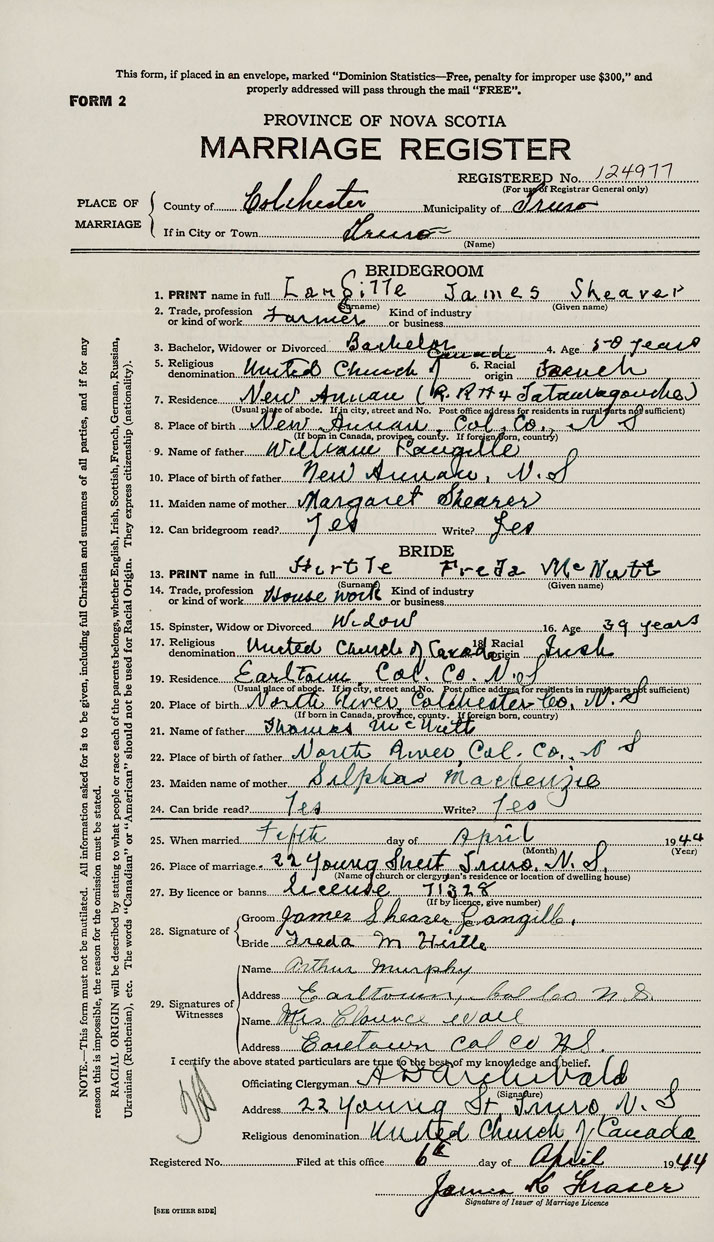 This form, if placed in an envelope, marked "Dominion Statistics—Free, penalty for improper use $300," and
properly addressed will pass through the mail "FREE".
FORM 2
PROVINCE OF NOVA SCOTIA
MARRIAGE REGISTER
REGISTERED No. 124977
(For use of Registrar General only)
PLACE OF MARRIAGE
County of Colchester Municipality of Truro
If in City or Town Truro
(Name)
BRIDEGROOM
1. PRINT name in full Langille James Shearer
(Surname) (Given name)
2. Trade, profession or kind of work Farmer Kind of industry or business
3. Bachelor, Widower or Divorced Bachelor 4. Age 50 years
5. Religious denomination United Church of Canada 6. Racial origin French
7. Residence New Annan (R.R #4 Tatamagouche)
(Usual place of abode. If in city, street and No. Post office address for residents in rural parts not sufficient)
8. Place of birth New Annan, Col. Co., N S
(If born in Canada, province, county. If foreign born, country)
9. Name of father William Langille
10. Place of birth of father New Annan, N.S
11. Maiden name of mother Margaret Shearer
12. Can bridegroom read? Yes Write? Yes
BRIDE
13. PRINT name in full Hirtle Freda McNutt
(Surname) (Given name)
14. Trade, profession or kind of work House work Kind of industry or business
15. Spinster, Widow or Divorced Widow 16. Age 39 years
17. Religious denomination United Church of Canada 18. Racial origin Irish
19. Residence Earltown, Col. Co. N.S
(Usual place of abode. If in city, street and No. Post office address for residents in rural parts not sufficient)
20. Place of birth North River, Colchester Co. N. S
(If born in Canada, province, county. If foreign born, country)
21. Name of father Thomas McNutt
22. Place of birth of father North River, Col. Co., N S
23. Maiden name of mother Mackenzie
24. Can bride read? Yes Write? Yes
25. When married Fifth day of April 1944
(Month) (Year)
26. Place of marriage 22 Young Street Truro, N. S.
(Name of church or clergyman's residence or location of dwelling house)
27. By licence or banns license 71328
(If by licence, give number)
28. Signature of
Groom James Shearer Langille.
Bride Freda M Hirtle
29. Signatures of Witnesses
Name Arthur Murphy
Address Earltown, Col Co N.S.
Name Mrs Clarence Wall
Address Earltown Col Co N.S.
I certify the above stated particulars are true to the best of my knowledge and belief.
Officiating Clergyman A D Archibald
(Signature)
Address 22 Young St Truro, N. S
Religious denomination United Church of Canada
Registered No. Filed at this office 6th day of April 1944
James K Fraser
Signature of Issuer of Marriage Licence
[SEE OTHER SIDE]
NOTE.—This form must not be mutilated. All information asked for is to be given, including full Christian and surnames of all parties, and if for any
reason this is impossible, the reason for the omission must be stated.
RACIAL ORIGIN will be described by stating to what people or race each of the parents belongs, whether English, Irish, Scottish, French, German, Russian,
Ukrainian (Ruthenian), etc. The words "Canadian" or "American" should not be used for Racial Origin. They express citizenship (nationality).